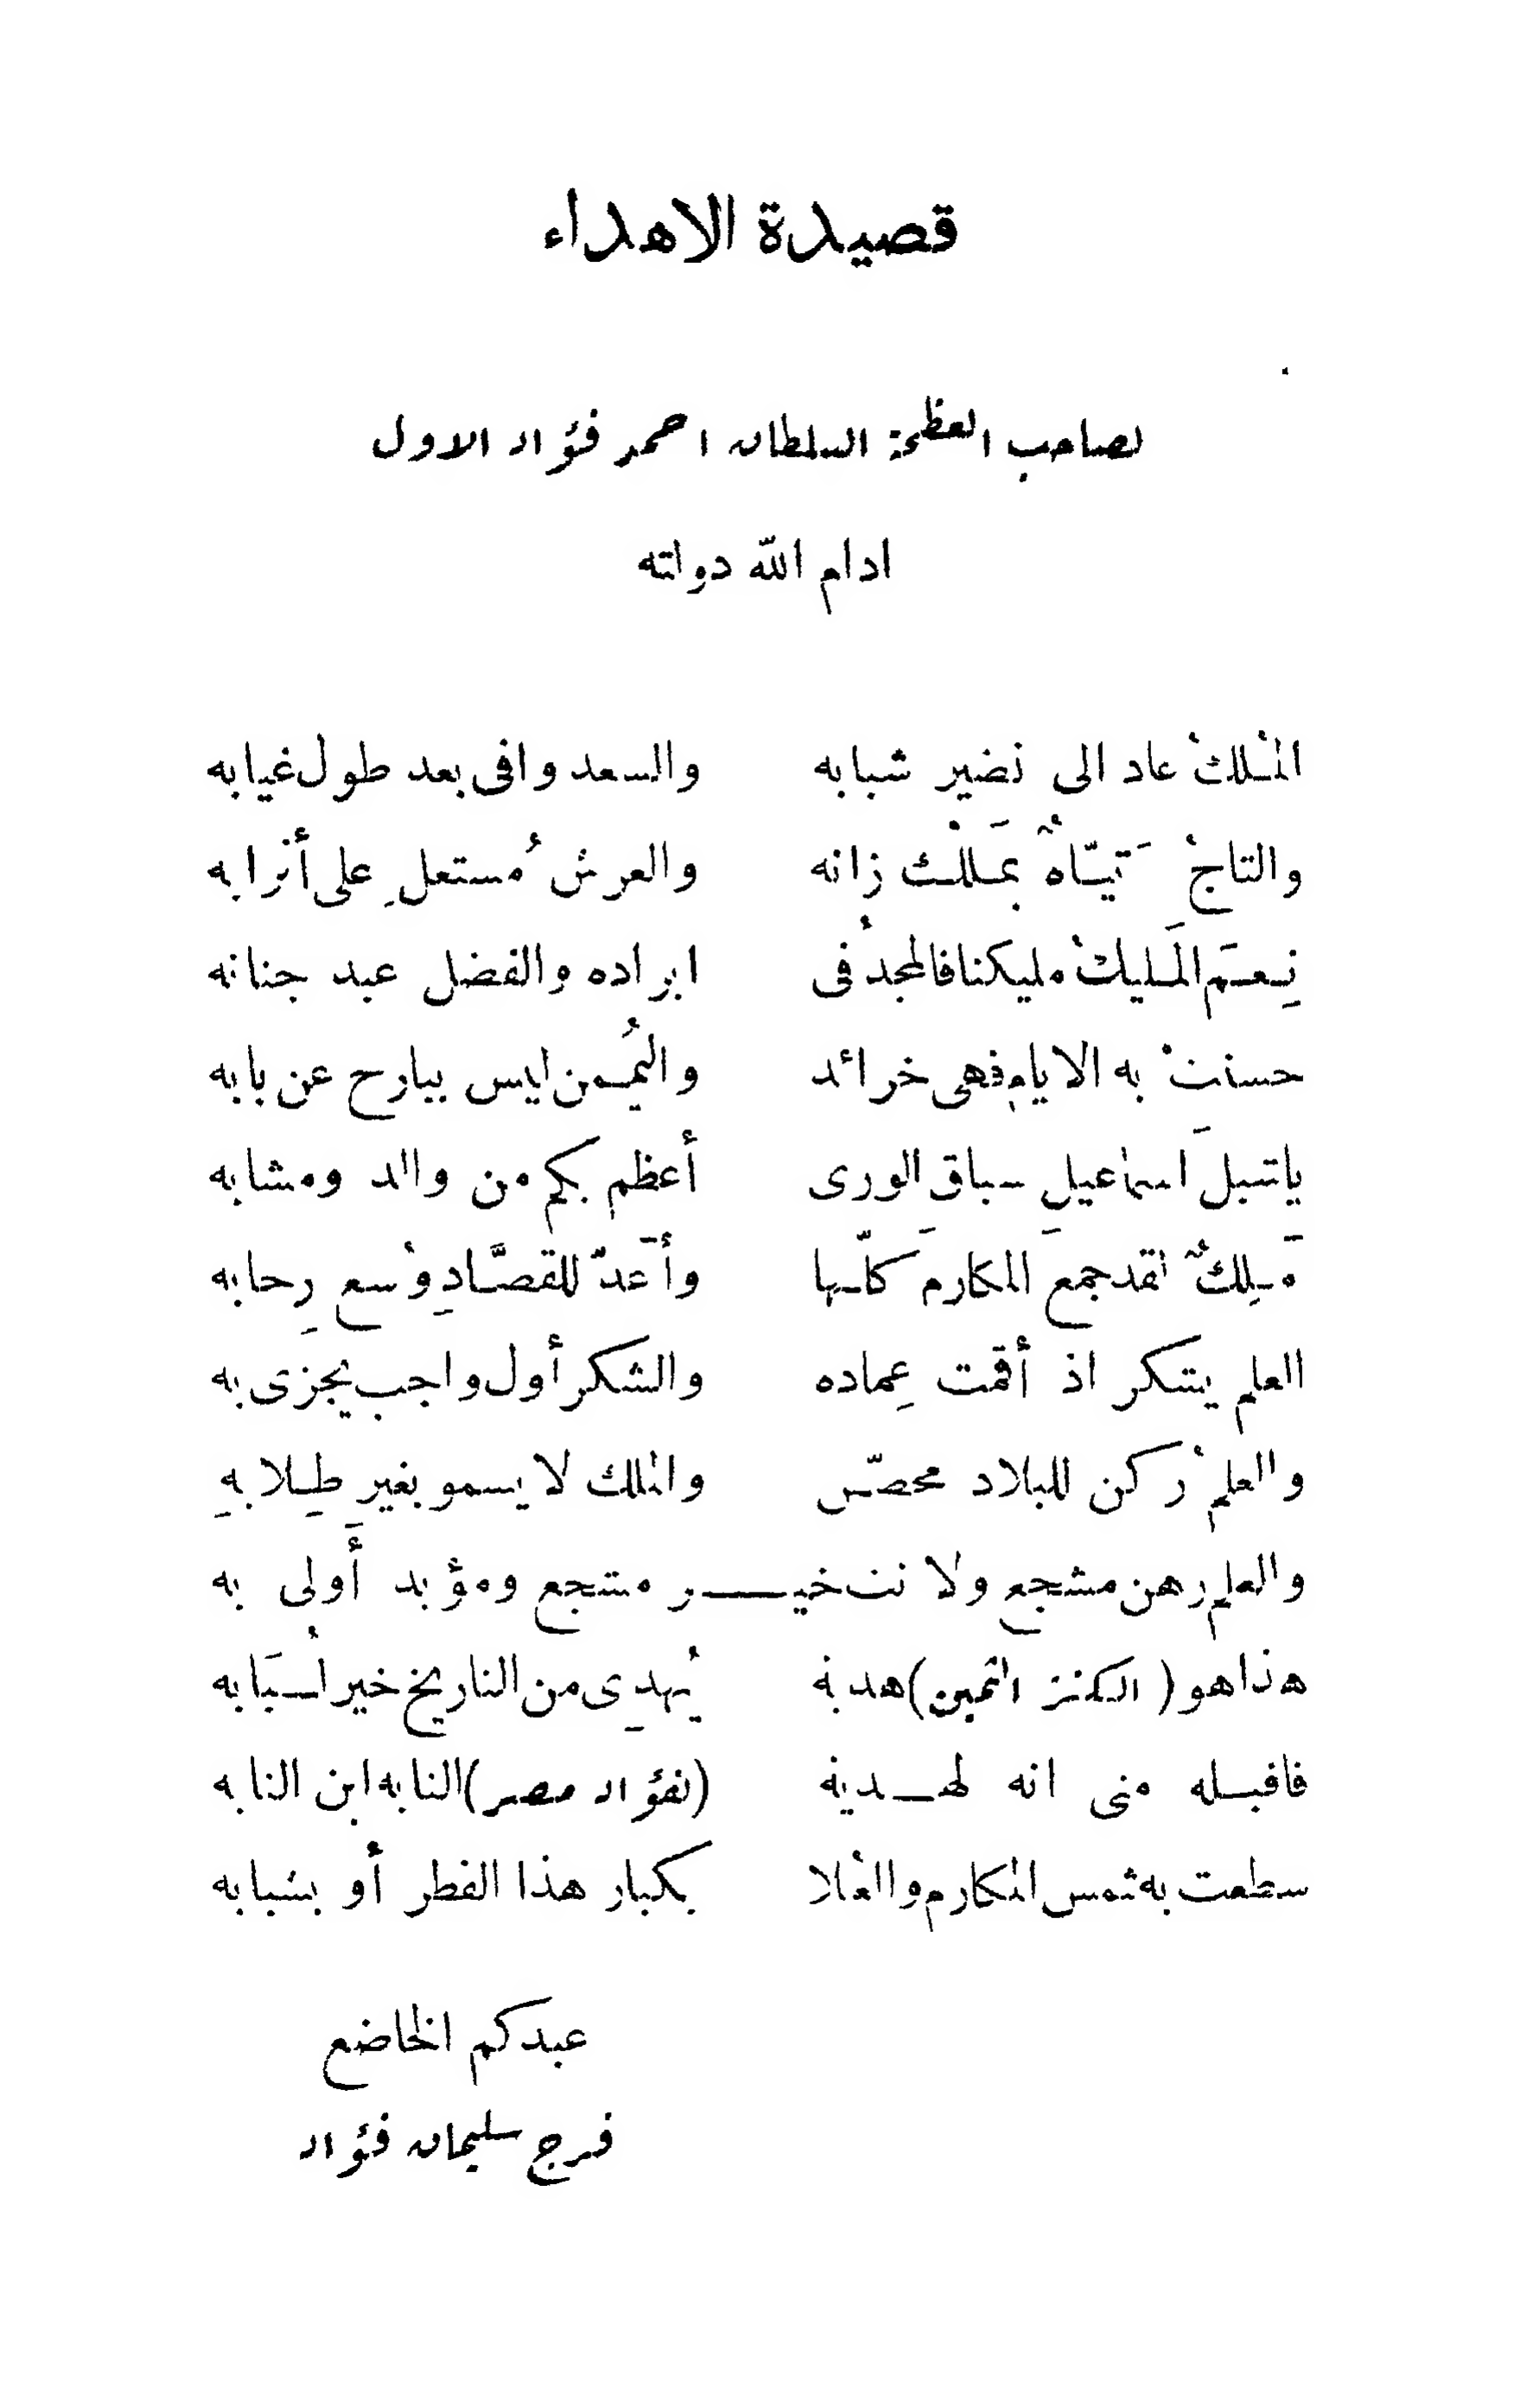 قصيدة الاهداء
لصاحب العظمة السلطان احمد فؤاد الاول
ادام الله دولته
المُلكُ عاد الى نضير شبابه والسعد وافى بعد طول غيابه
والتاجُ تَيّاهٌ بمَلْك زانه والعرش مُستعلٍ على أترابه
نِعمَ المَليكُ مليكنا فالمجدُ فى ابراده والفضل عبد جنابه
حسنتْ به الايام فهى خرائد واليُمن ليس ببارح عن بابه
ياشبلَ اسماعيلِ سباقَ الورى أعظم بكم من والد ومشابه
مَلِكٌ لقد جمع المكارمَ كلّها وأعَدّ للقصَّادِ وُسع رِحابه
العلم يشكر اذ أقمت عِماده والشكر أول واجب يجزى به
والعلمُ ركن للبلاد محصّن والملك لا يسمو بغيرِ طِلابهِ
والعلم رهن مشجع ولانت خيـر مشجع ومؤيد أَولى به
هذا هو (الكنز الثمين) هدية يُهدِى من التاريخ خير لُبَابه
فاقبله منى انه لهدية (لفؤاد مصر) النابه ابن النابه
سطعت به شمس المكارم والعُلا بكبار هذا القطر أو بشبابه
عبدكم الخاضع
فرج سليمان فؤاد